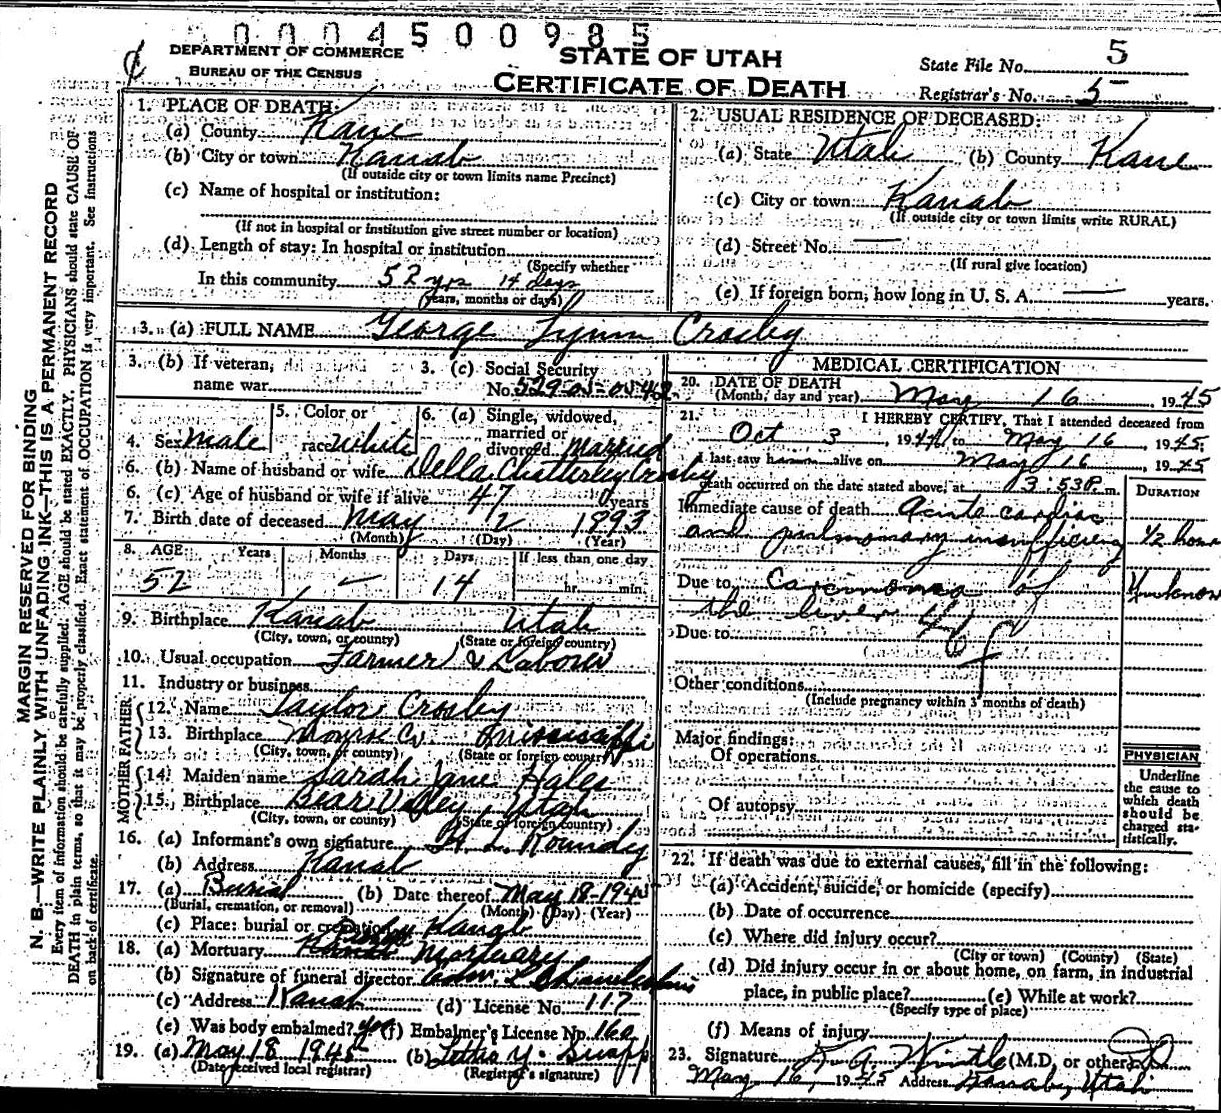 0004500985
DEPARTMENT OF COMMERCE
BUREAU OF THE CENSUS
STATE OF UTAH
CERTIFICATE OF DEATH
State File No. 5
Registrar's No. 5
MARGIN RESERVED FOR BINDING
N. B.—WRITE PLAINLY WITH UNFADING INK—THIS IS A PERMANENT RECORD
Every item of information should be carefully supplied. AGE should be stated EXACTLY. PHYSICIANS should state CAUSE OF
DEATH in plain terms, so that it may be properly classified. Exact statement of OCCUPATION is very important. See instructions
on back of certificate.
1. PLACE OF DEATH:
(a) County Kane
(b) City or town Kanab
(If outside city or town limits name Precinct)
(c) Name of hospital or institution:
(If not in hospital or institution give street number or location)
(d) Length of stay: In hospital or institution
(Specify whether
In this community 52 yrs 14 days
years, months or days)
2. USUAL RESIDENCE OF DECEASED:
(a) State Utah (b) County Kane
(c) City or town Kanab
(If outside city or town limits write RURAL)
(d) Street No. —
(If rural give location)
(e) If foreign born, how long in U. S. A. — years.
3. (a) FULL NAME George Lynn Crosby
3. (b) If veteran, name war
3. (c) Social Security No. 529-05-05-462
4. Sex Male
5. Color or race White
6. (a) Single, widowed, married or divorced Married
6. (b) Name of husband or wife Della Chatterley Crosby
6. (c) Age of husband or wife if alive 47 years
7. Birth date of deceased May 2 1893
(Month) (Day) (Year)
8. AGE Years Months Days If less than one day
52 – 14 hr. min.
9. Birthplace Kanab Utah
(City, town, or county) (State or foreign country)
10. Usual occupation Farmer & Laborer
11. Industry or business
FATHER
12. Name Taylor Crosby
13. Birthplace Monroe Co. Mississippi
(City, town, or county) (State or foreign country)
MOTHER
14. Maiden name Sarah Jane Hales
15. Birthplace Bear Valley, Utah
(City, town, or county) (State or foreign country)
16. (a) Informant's own signature H. L. Roundy
(b) Address Kanab
17. (a) Burial (b) Date thereof May 18-1945
(Burial, cremation, or removal) (Month) (Day) (Year)
(c) Place: burial or cremation Kanab
18. (a) Mortuary Mortuary
(b) Signature of funeral director
(c) Address Kanab (d) License No. 117
(e) Was body embalmed? yes (f) Embalmer's License No. 160
19. (a) May 18 1945 (b)
(Date received local registrar) (Registrar's signature)
MEDICAL CERTIFICATION
20. DATE OF DEATH
(Month, day and year) May 16 1945
21. I HEREBY CERTIFY, That I attended deceased from
Oct 3, 1944 to May 16, 1945
I last saw him alive on May 16, 1945
death occurred on the date stated above, at 3:53 P. m.
DURATION
Immediate cause of death Acute cardiac
and pulmonary insufficiency ½ hour
Due to Carcinoma of Unknown
the liver 46f
Due to
Other conditions
(Include pregnancy within 3 months of death)
Major findings:
Of operations
Of autopsy
PHYSICIAN
Underline
the cause to
which death
should be
charged sta-
tistically.
22. If death was due to external causes, fill in the following:
(a) Accident, suicide, or homicide (specify)
(b) Date of occurrence
(c) Where did injury occur?
(City or town) (County) (State)
(d) Did injury occur in or about home, on farm, in industrial
place, in public place? (e) While at work?
(Specify type of place)
(f) Means of injury
23. Signature (M.D. or other)
May 16, 1945 Address Kanab, Utah